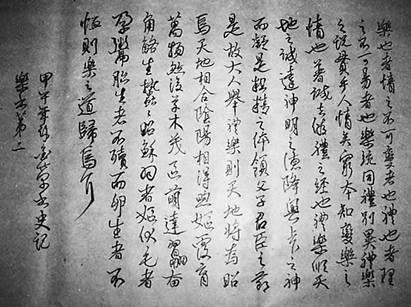 樂也者情之不可變者也禮也者理
之不可易者也樂統同禮別異禮樂
之說貫乎人情矣窮本知變樂之
情也著誠去偽禮之經也禮樂順天
地之誠達神明之德降興上下之神
而凝是精粗之體領父子君臣之節
是故大人舉禮樂則天地將為昭
焉天地相合陰陽相得煦嫗覆育
萬物然後草木茂區萌達羽翮奮
角觡生蟄蟲昭穌羽者嫗伏毛者
孕鬻胎生者不殰而卵生者不
殈則樂之道歸焉耳
甲午年史記
樂書第二